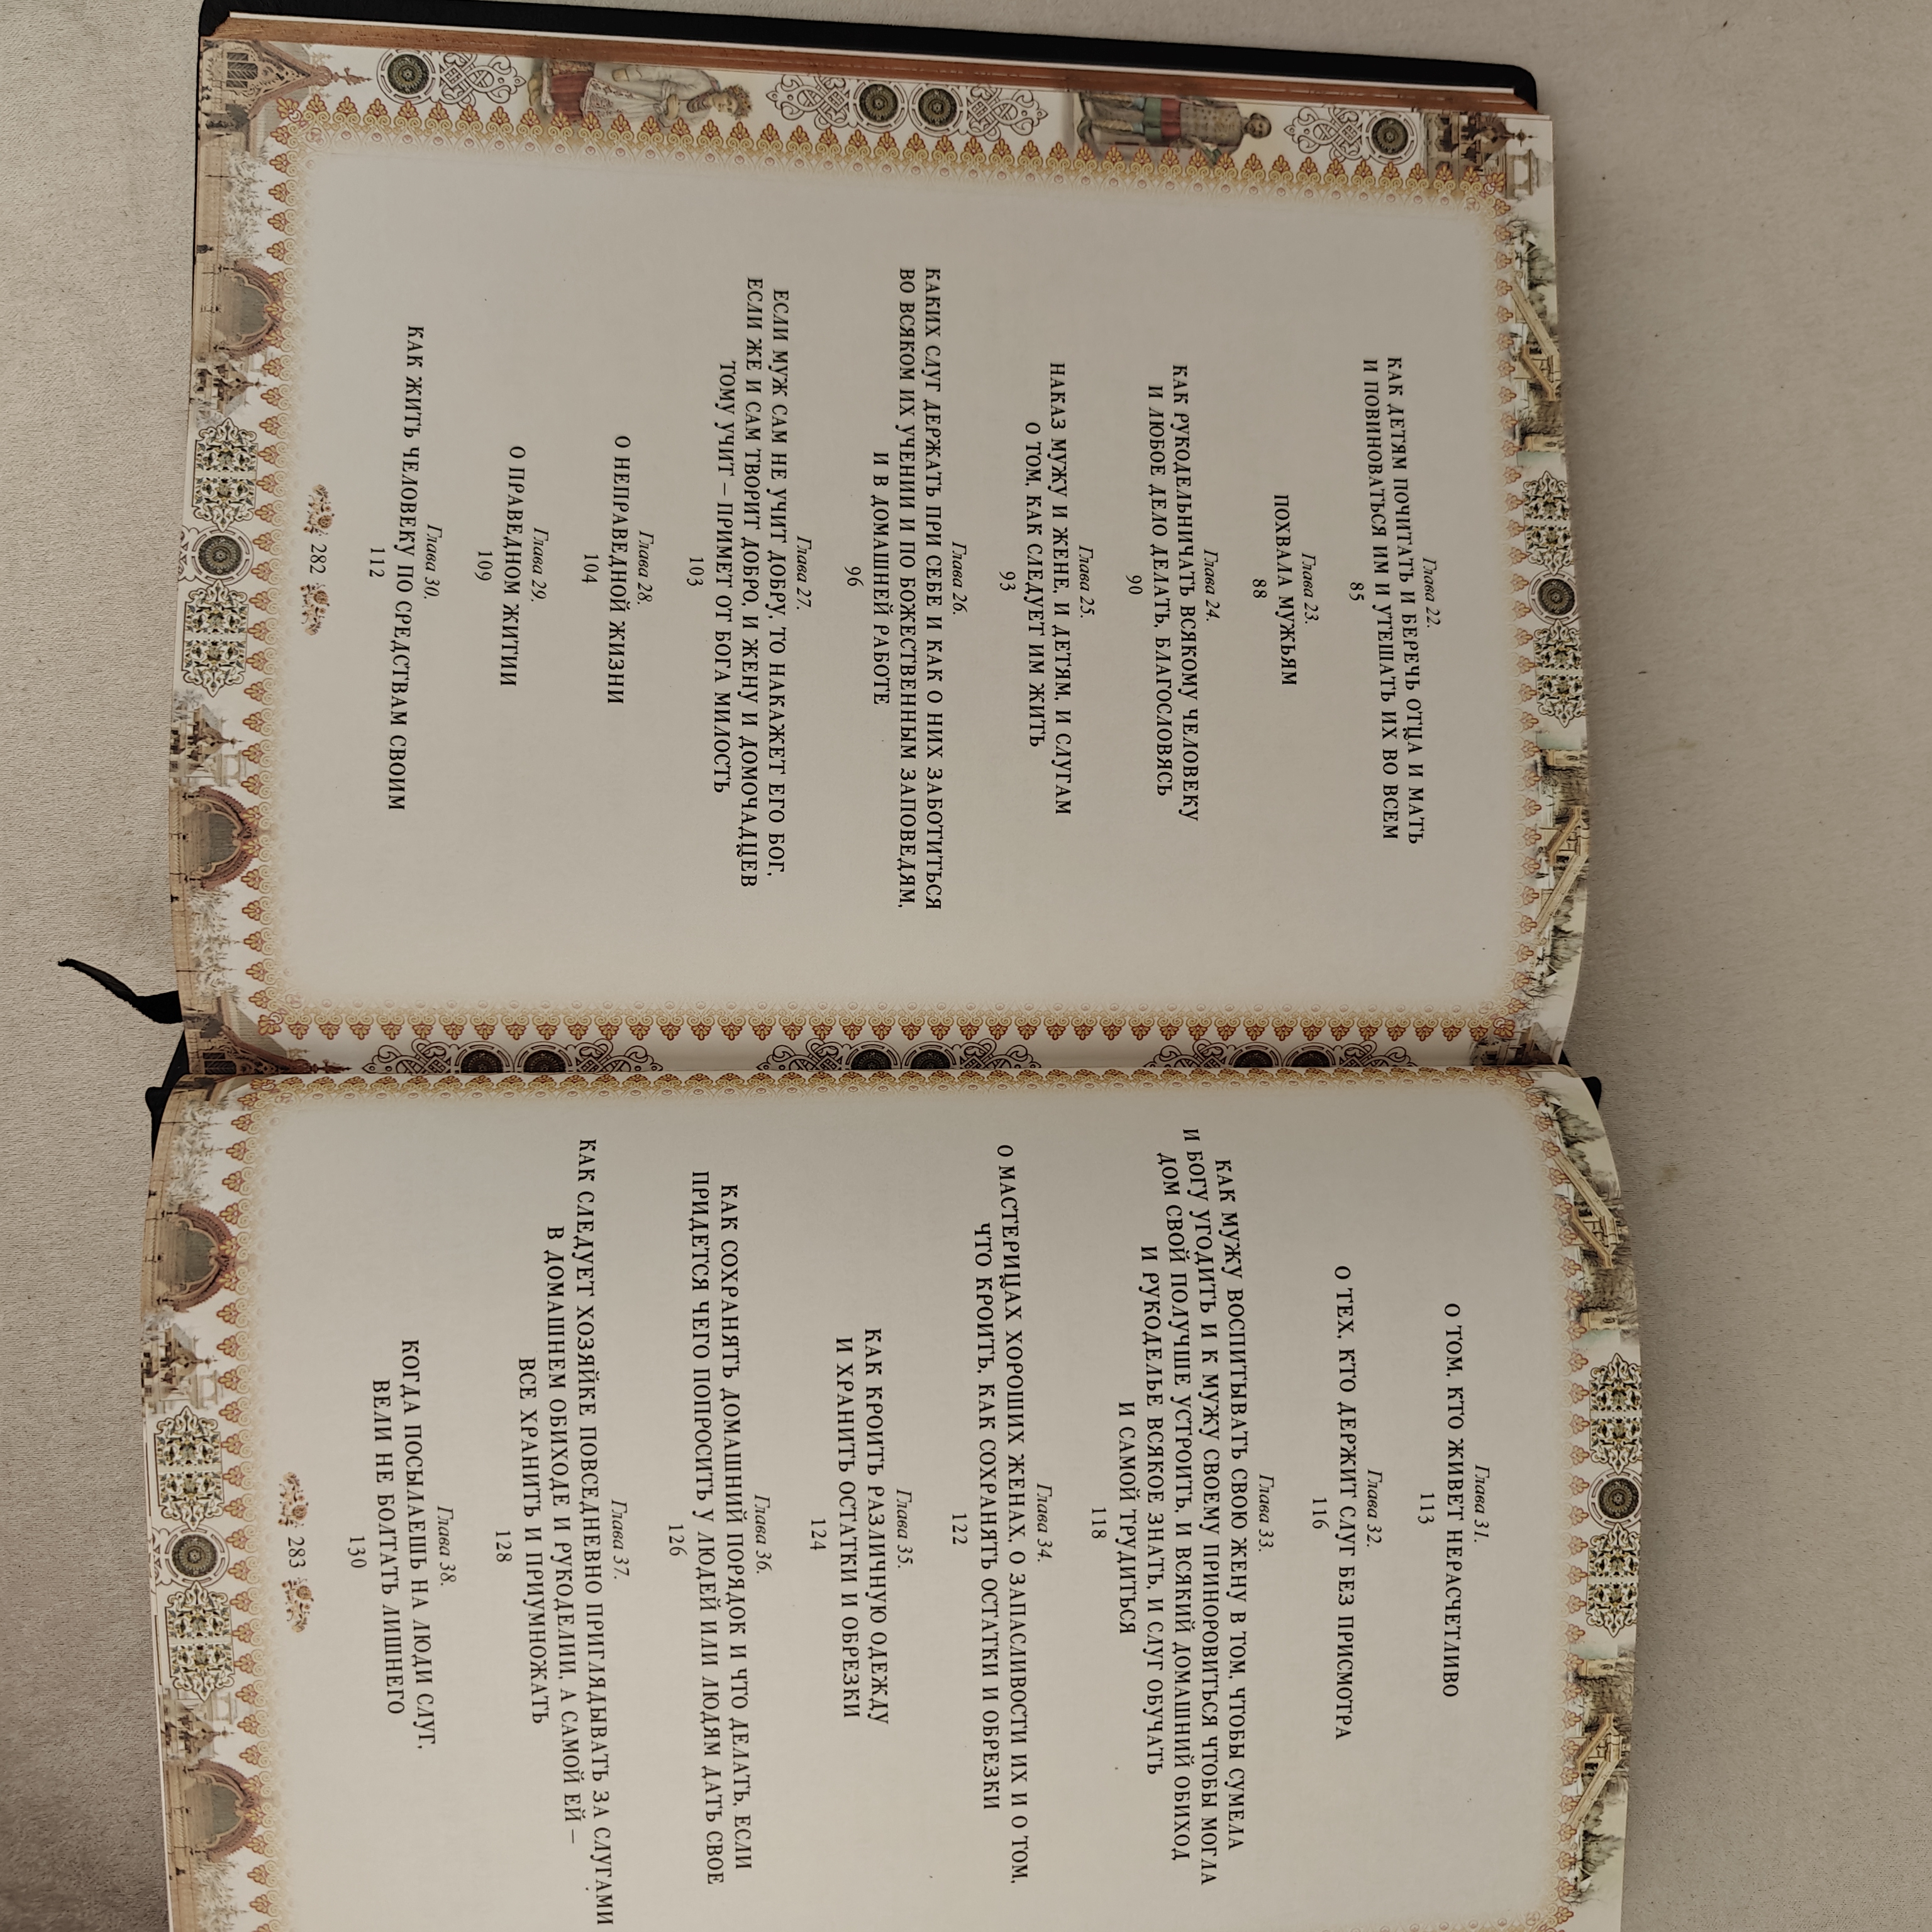 Глава 22.
КАК ДЕТЯМ ПОЧИТАТЬ И БЕРЕЧЬ ОТЦА И МАТЬ
И ПОВИНОВАТЬСЯ ИМ И УТЕШАТЬ ИХ ВО ВСЕМ
85
Глава 23.
ПОХВАЛА МУЖЬЯМ
88
Глава 24.
КАК РУКОДЕЛЬНИЧАТЬ ВСЯКОМУ ЧЕЛОВЕКУ
И ЛЮБОЕ ДЕЛО ДЕЛАТЬ, БЛАГОСЛОВЯСЬ
90
Глава 25.
НАКАЗ МУЖУ И ЖЕНЕ, И ДЕТЯМ, И СЛУГАМ
О ТОМ, КАК СЛЕДУЕТ ИМ ЖИТЬ
93
Глава 26.
КАКИХ СЛУГ ДЕРЖАТЬ ПРИ СЕБЕ И КАК О НИХ ЗАБОТИТЬСЯ
ВО ВСЯКОМ ИХ УЧЕНИИ И ПО БОЖЕСТВЕННЫМ ЗАПОВЕДЯМ,
И В ДОМАШНЕЙ РАБОТЕ
96
Глава 27.
ЕСЛИ МУЖ САМ НЕ УЧИТ ДОБРУ, ТО НАКАЖЕТ ЕГО БОГ,
ЕСЛИ ЖЕ И САМ ТВОРИТ ДОБРО, И ЖЕНУ И ДОМОЧАДЦЕВ
ТОМУ УЧИТ – ПРИМЕТ ОТ БОГА МИЛОСТЬ
103
Глава 28.
О НЕПРАВЕДНОЙ ЖИЗНИ
104
Глава 29.
О ПРАВЕДНОМ ЖИТИИ
109
Глава 30.
КАК ЖИТЬ ЧЕЛОВЕКУ ПО СРЕДСТВАМ СВОИМ
112
282
Глава 31.
О ТОМ, КТО ЖИВЕТ НЕРАСЧЕТЛИВО
113
Глава 32.
О ТЕХ, КТО ДЕРЖИТ СЛУГ БЕЗ ПРИСМОТРА
116
Глава 33.
КАК МУЖУ ВОСПИТЫВАТЬ СВОЮ ЖЕНУ В ТОМ, ЧТОБЫ СУМЕЛА
И БОГУ УГОДИТЬ И К МУЖУ СВОЕМУ ПРИНОРОВИТЬСЯ ЧТОБЫ МОГЛА
ДОМ СВОЙ ПОЛУЧШЕ УСТРОИТЬ, И ВСЯКИЙ ДОМАШНИЙ ОБИХОД
И РУКОДЕЛЬЕ ВСЯКОЕ ЗНАТЬ, И СЛУГ ОБУЧАТЬ
И САМОЙ ТРУДИТЬСЯ
118
Глава 34.
О МАСТЕРИЦАХ ХОРОШИХ ЖЕНАХ, О ЗАПАСЛИВОСТИ ИХ И О ТОМ,
ЧТО КРОИТЬ, КАК СОХРАНЯТЬ ОСТАТКИ И ОБРЕЗКИ
122
Глава 35.
КАК КРОИТЬ РАЗЛИЧНУЮ ОДЕЖДУ
И ХРАНИТЬ ОСТАТКИ И ОБРЕЗКИ
124
Глава 36.
КАК СОХРАНЯТЬ ДОМАШНИЙ ПОРЯДОК И ЧТО ДЕЛАТЬ, ЕСЛИ
ПРИДЕТСЯ ЧЕГО ПОПРОСИТЬ У ЛЮДЕЙ ИЛИ ЛЮДЯМ ДАТЬ СВОЕ
126
Глава 37.
КАК СЛЕДУЕТ ХОЗЯЙКЕ ПОВСЕДНЕВНО ПРИГЛЯДЫВАТЬ ЗА СЛУГАМИ
В ДОМАШНЕМ ОБИХОДЕ И РУКОДЕЛИИ, А САМОЙ ЕЙ –
ВСЕ ХРАНИТЬ И ПРИУМНОЖАТЬ
128
Глава 38.
КОГДА ПОСЫЛАЕШЬ НА ЛЮДИ СЛУГ,
ВЕЛИ НЕ БОЛТАТЬ ЛИШНЕГО
130
283